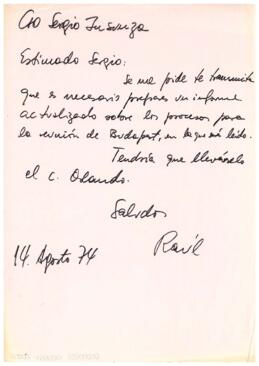 Cro Sergio Insunza
Estimado Sergio:
Se me pide te transmita
que es necesario preparar un informe
actualizado sobre los procesos para
la reunión de Budapest, en la que será leído.
Tendría que llevárselo
el c. Orlando.
Saludos
Raúl
14. Agosto 74